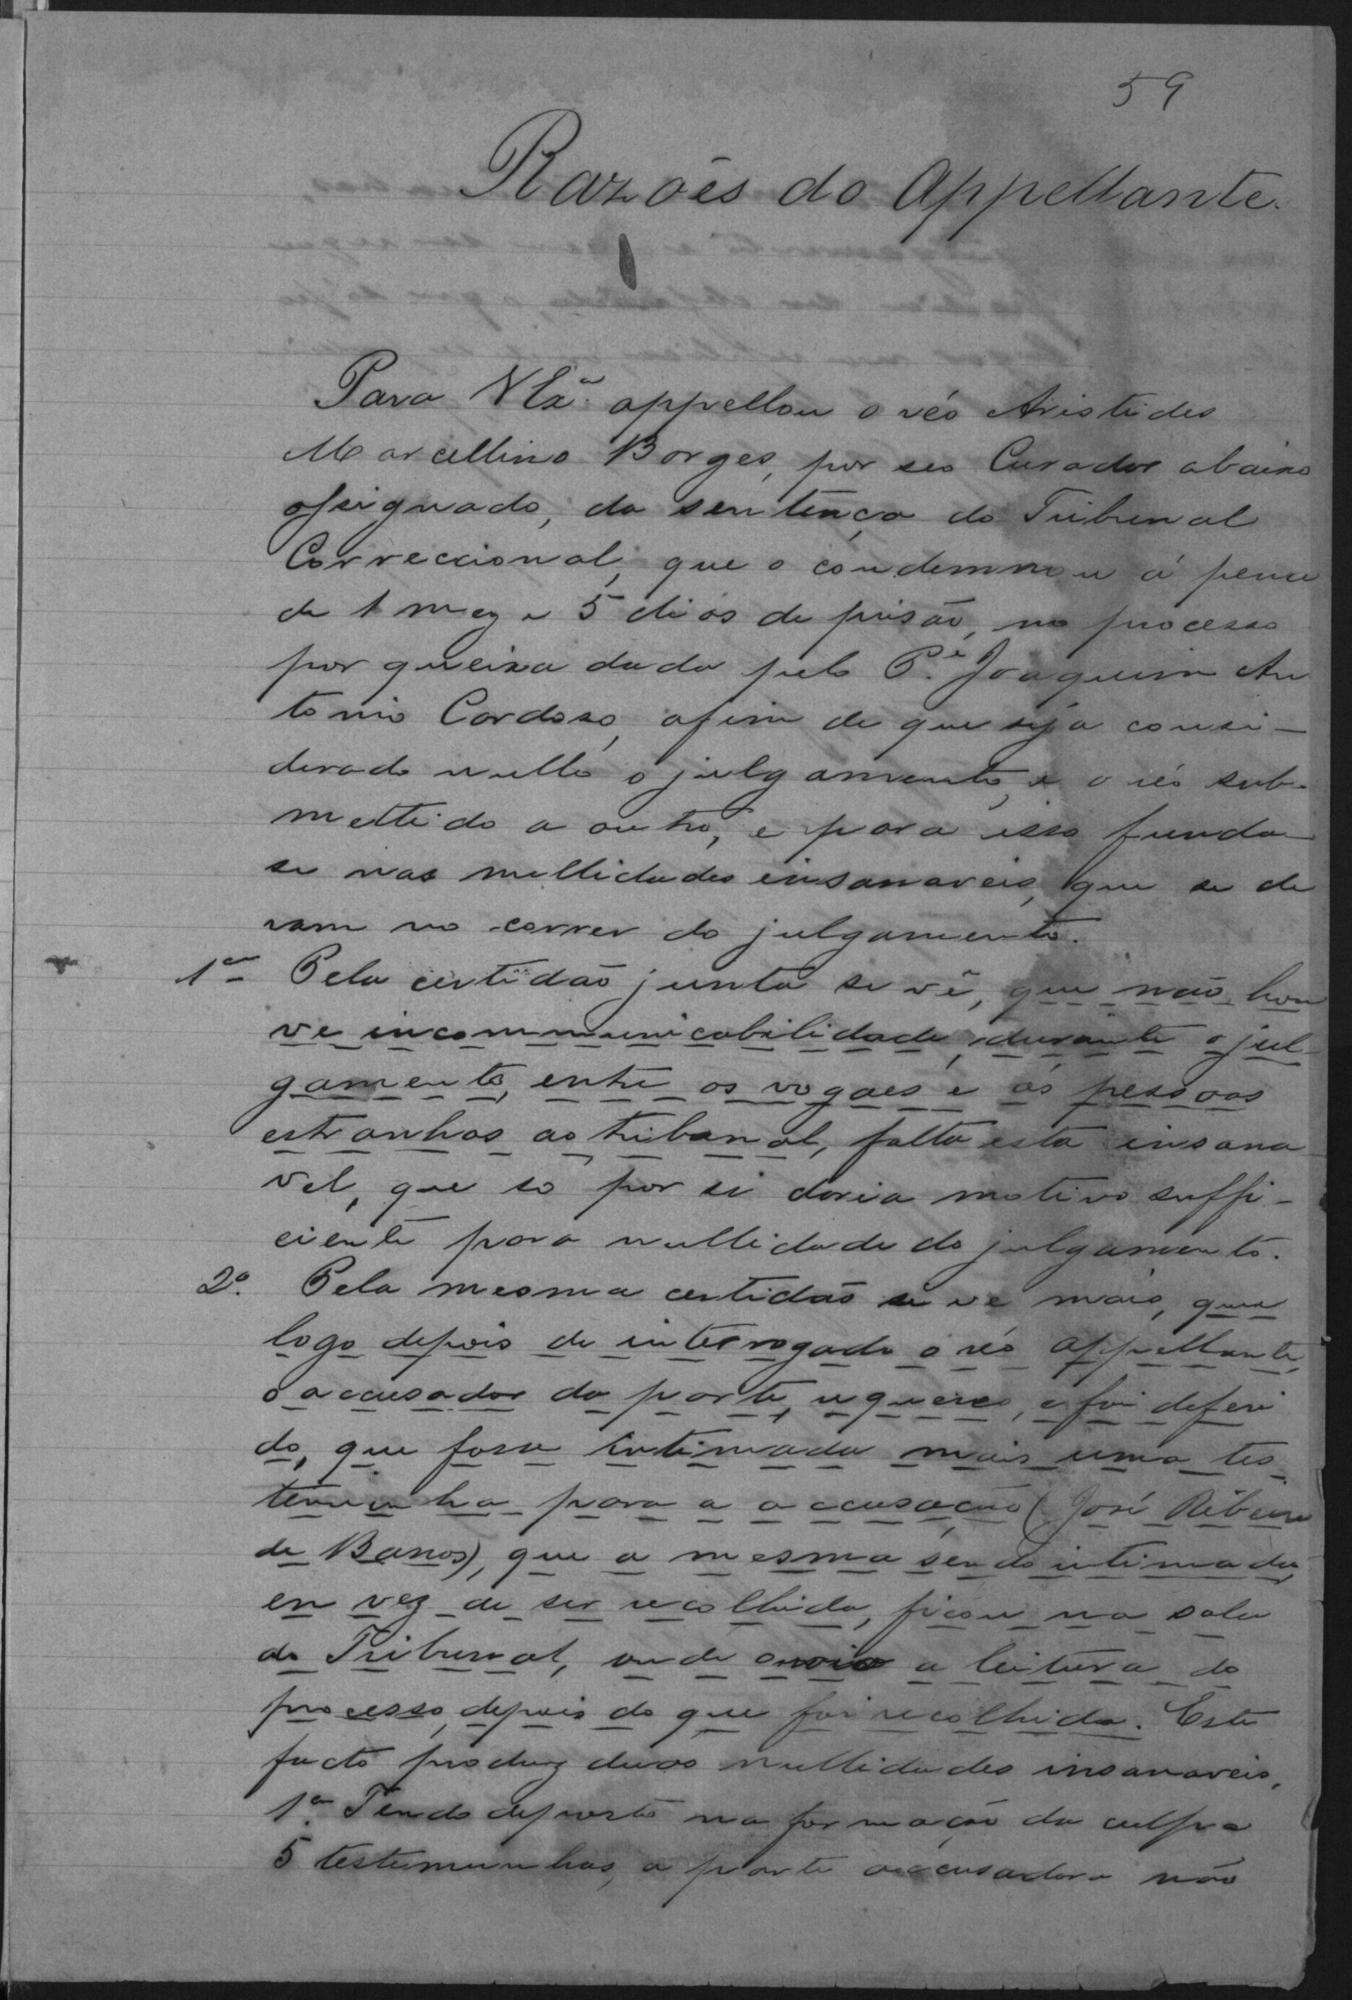 59
Razoẽs do Appellante.
Para V Exª appellou o réo Aristides
Marcellino Borges, por seo Curador abaixo
assignado, da sentença do Tribunal
Correccional, que o condemnou á pena
de 1 mez e 5 dias de prisão, no processo
por queixa dada pelo Pe. Joaquim An
tonio Cardoso, afim de que seja consi-
derado nullo o julgamento, e o réo sub-
mettido a outro, e para isso funda-
se nas nullidades insanaveis, que se de
ram no correr do julgamento.
1ª Pela certidão junta se vê, que não hou
ve incommunicabilidade, durante o jul-
gamento, entre os vogaes e as pessoas
estranhas ao tribunal, falta esta insana
vel, que so por si daria motivo suffi-
ciente para nullidade do julgamento.
2º. Pela mesma certidão se ve mais, que
logo depois de interrogado o réo appellante,
o accusador da parte, requereo, e foi deferi
do, que fosse intimada mais uma tes-
temunha para a accusação (José Ribeiro
de Barros), que a mesma sendo intimada,
em vez de ser recolhida, ficou na sala
do Tribunal, onde ouvio a leitura do
processo, depois do que foi recolhida. Este
facto produz duas nullidades insanaveis.
1ª. Tendo deposto na formação da culpa
5 testemunhas, a parte accusadora não